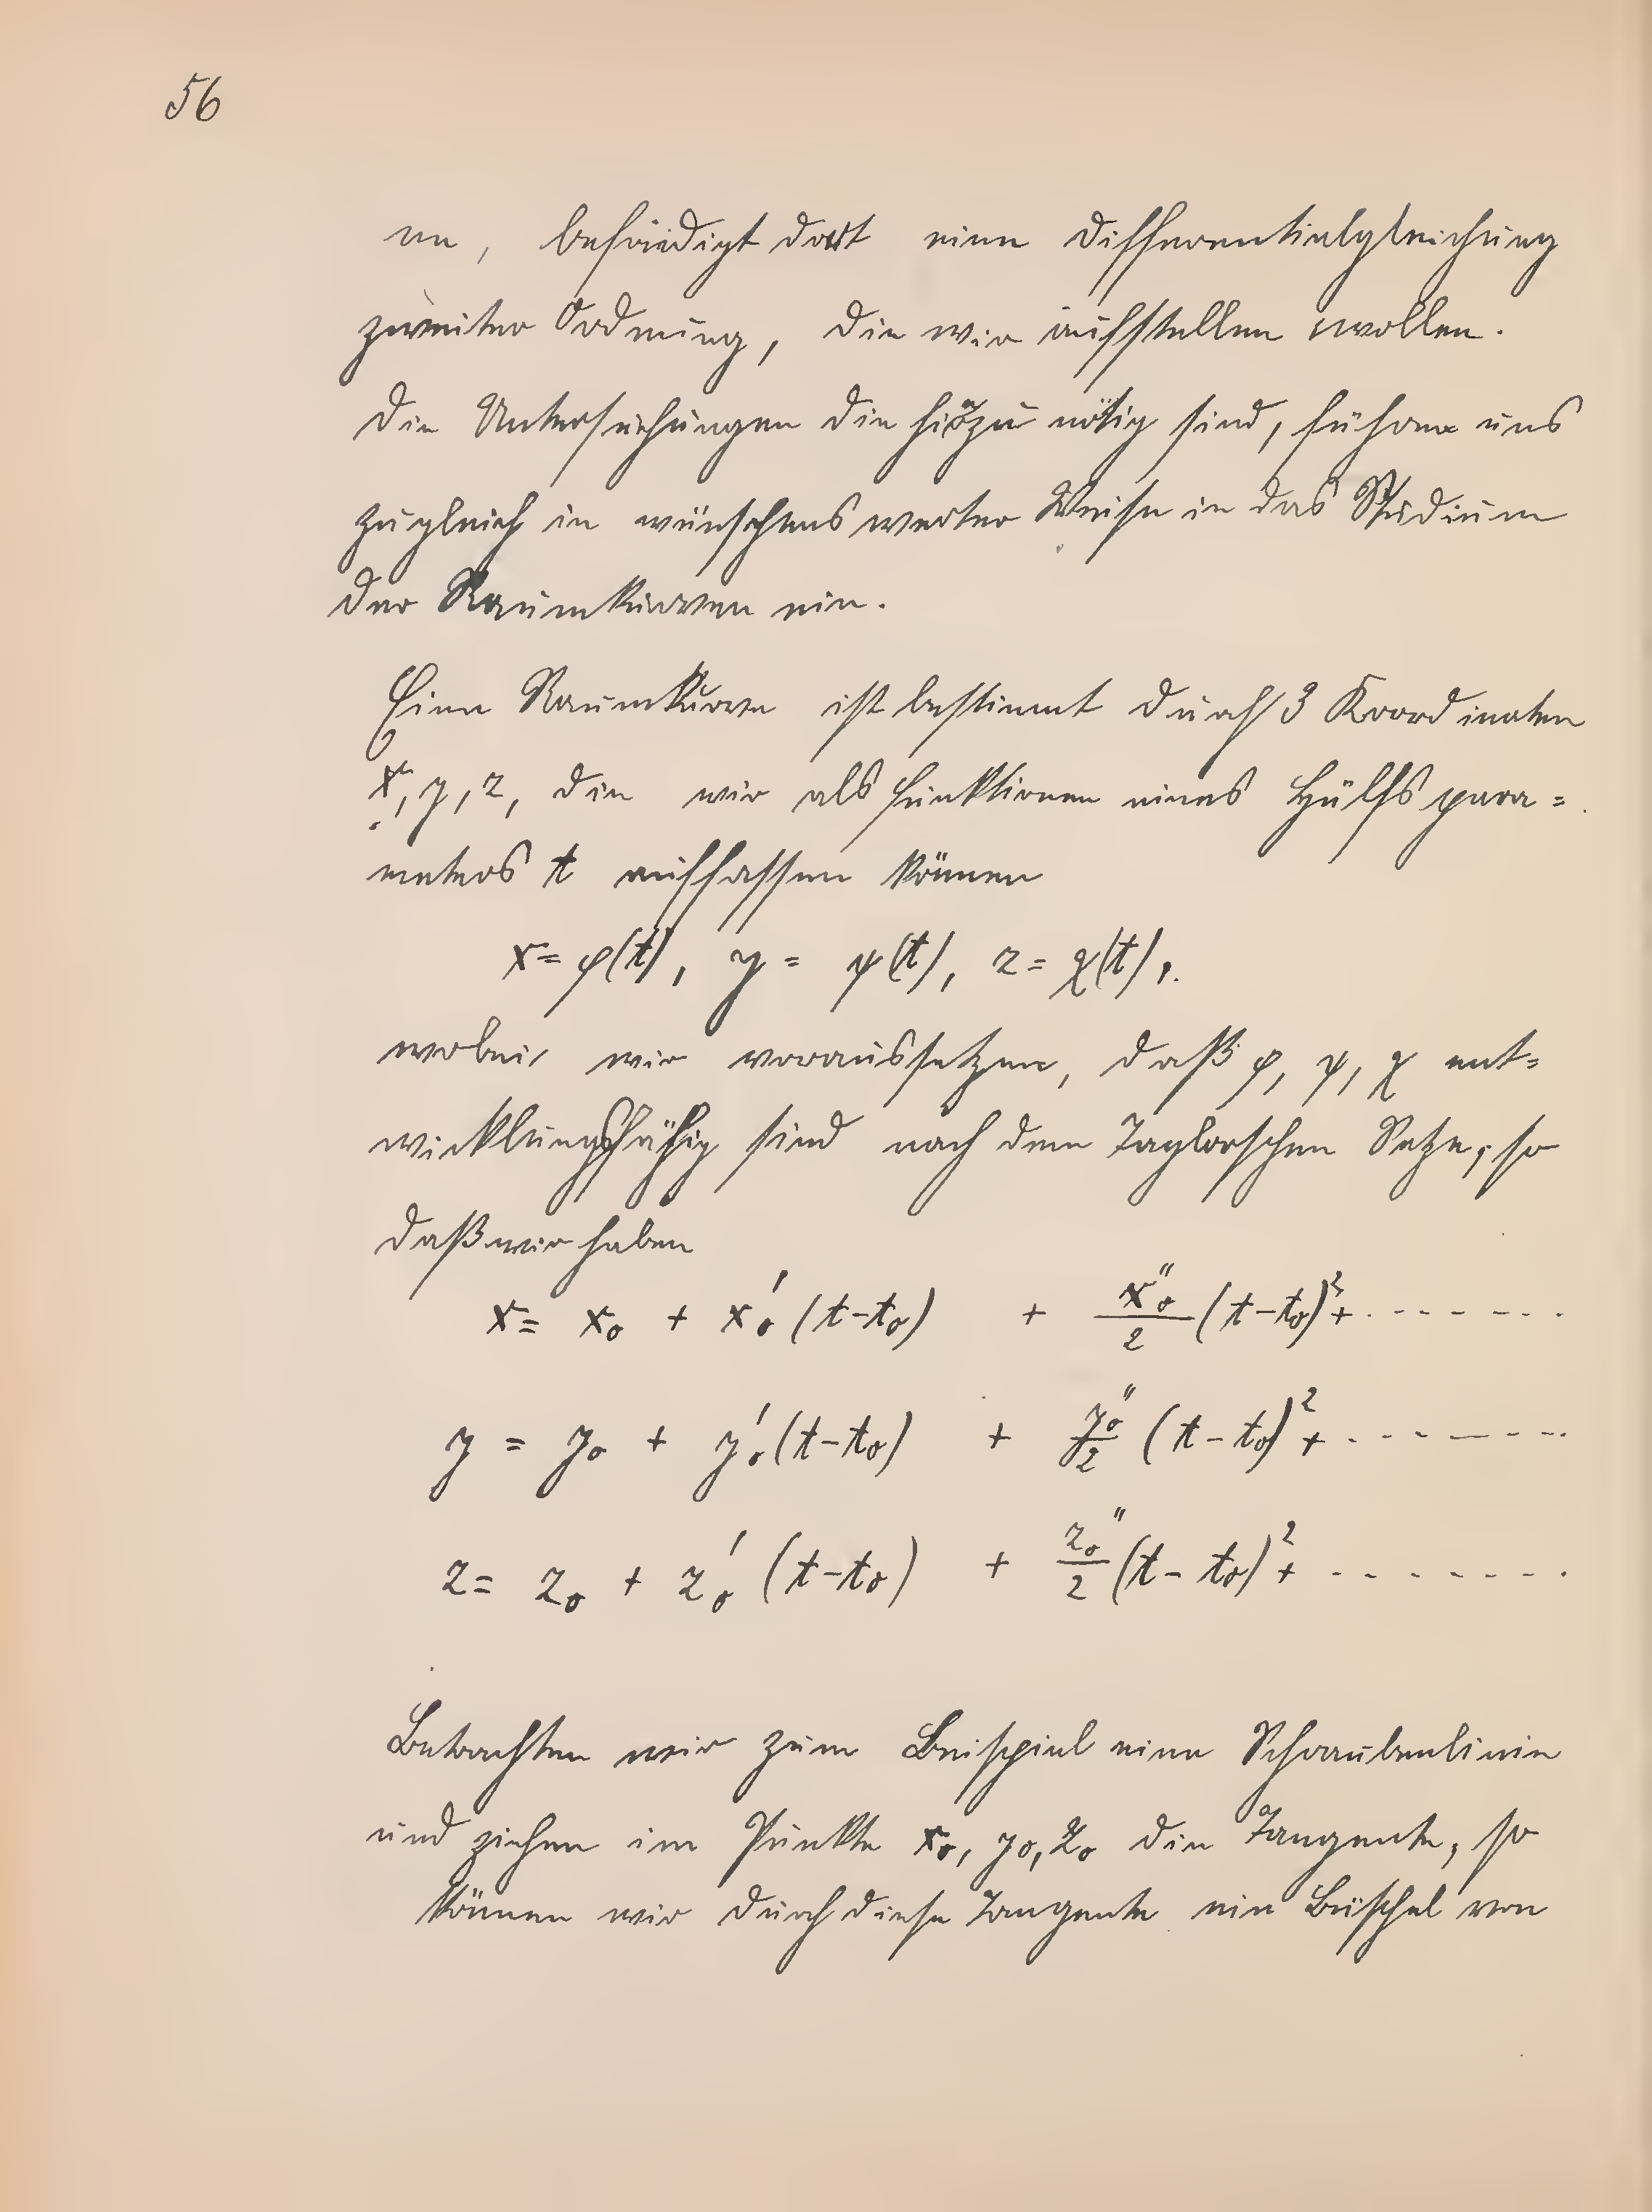 56
en, befriedigt dort eine Differentialgleichung
zweiter Ordnung, die wir aufstellen wollen.
Die Untersuchungen die hierzu nötig sind, führen uns
zugleich in wünschenswerter Weise in das Studium
der Raumkurven ein.
Eine Raumkurve ist bestimmt durch 3 Koordinaten
x, y, z, die wir als Funktionen eines Hülfspara=
meters t auffassen können
x = φ(t), y = ψ(t), z = χ(t),
wobei wir voraussetzen, daß φ, ψ, χ ent=
wicklungsfähig sind nach dem Taylorschen Satze, so
daß wir haben
x = x₀ + x₀′ (t-t₀) + x₀″/2 (t-t₀)² + ........
y = y₀ + y₀′ (t-t₀) + y₀″/2 (t-t₀)² + ........
z = z₀ + z₀′ (t-t₀) + z₀″/2 (t-t₀)² + ........
Betrachten wir zum Beispiel eine Schraubenlinie
und ziehen im Punkte x₀, y₀, z₀ die Tangente, so
können wir durch diese Tangente ein Büschel von